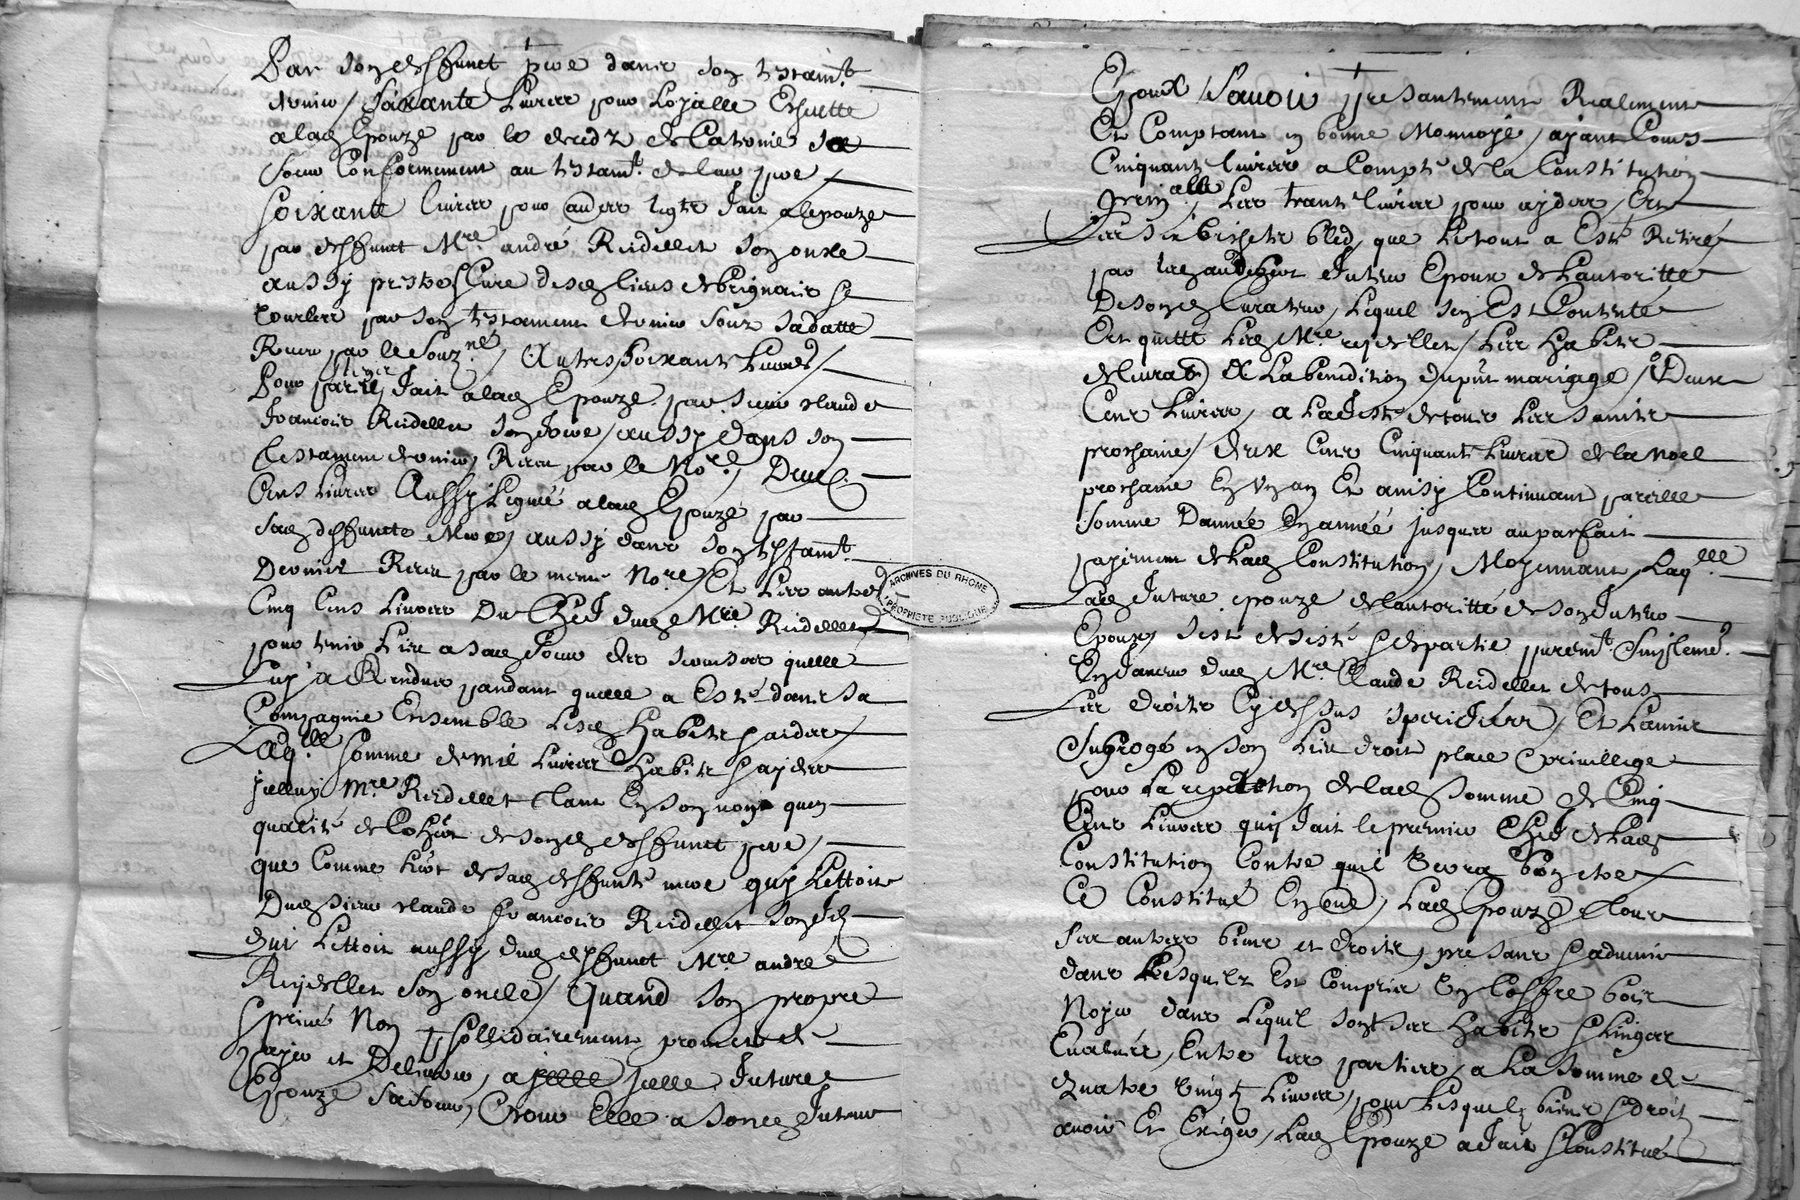 Par sond deffunct pere dans son testamt
dernier / soixante Livres pour Loyalle Escheutte
a lad Epouze par le decedz de Catrine sa
soeur Conformement au testamt de leur pere /
Soixante livres pour autres legtz fait a lepouze
par deffunct Mre andré Reidellet son oncle
aussy prestre Curé desd lieux de Brignais &
vourles par son testament dernier soubz sa datte
Receu par le Soubzné / Autres soixante Livres /
Pour pareil leger fait a lad Epouze par Sieur claude
francois Reidellet son frere / aussy dans son
testament dernier Receu par le Nore / Deux
Cens Livres Aussy Legués a lad Epouze par
sad deffuncte Mere, aussy dans son testamt
Dernier Receu par le meme Nore / Et Les autres
Cinq Cens Livres Du Chef dud Mre Reidellet
pour tenir Lieu a sad soeur des services quelle
Luy a Rendus pandant quelle a Esté dans sa
Compagnie Ensemble Lesd habits & aides
Laqlle somme de mil Livres habits & aydes
Jcelluy Mre Reidellet tant En son nom qu'en
qualité de Cohert de sond deffunct pere /
que Comme hert de sad deffunte mere quy Lettoit
Dud Sieur claude francois Reidellet son fils
Quy Lettoit aussy dud deffunct Mre andré
Reydellet son oncle / Quand son propre
& privé Non sollidairement promet de
payer et Delivrer, a jcelle future
Epouze sa soeur, Et pour Elle a sond futeur
Epoux / Savoir presantement Realement
Et Comptant en bonne Monnoye, ayant Cours
Cinquante livres a Compte de la Constitution
prinalle, Les trante livres pour aydes, Et
Les six bichets bled, que Le tout a Esté Retiré
par led futeur Epoux de Lautoritté
De sond Curateur, Lequel sen Est Contenté
Et quitte Led Mre rejdellet / Les habits
de leurs a La benediction du pnt mariage / Deux
Cens Livres, a La feste de tous Les saints
prochaine / deux Cens Cinquante Livres de la noel
prochaine En un an Et ainsy Continuant pareille
somme Dannée En année jusques au parfait
payement de Lad Constitution, Moyennant Laqlle
Lad future epouze de lautoritté de son futeur
Epoux, sest desisté & despartie puremt & simplemt
En faveur dud Mre Claude Reidellet de tous
Les droits Cy dessus speciffiés / Et Lamis
& Subrogé en son Lieu droit place & privillege
pour La repetition de lad somme de Cinq
Cens Livres quy fait le premier Chef de Lad
Constitution Contre quil verra bon etre
Ce Constitué En outre, Lad Epouze tous
ses autres biens et droits, presans & advenir
dans Lesquelz Est Compris En Coffre bois
Noyer dans Lequel sont ses habits & linges
Evalués, Entre Les parties, a La somme de
Quatre vingt Livres, pour Lesquelz biens & droits
avoir Et Exiger, Lad Epouze a fait & Constitué
ARCHIVES DU RHONE
PROPRIETE PUBLIQUE